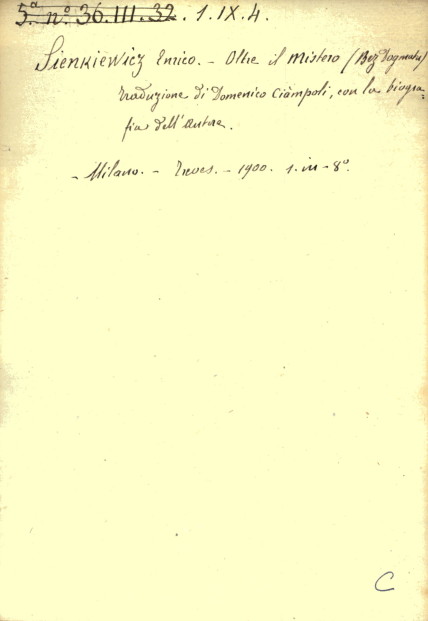 5.ª nº. 36.III.32. 1.IX.4.
Sienkiewicz Enrico. - Oltre il Mistero (Bez Dogmatu)
traduzione di Domenico Ciàmpoli, con la biogra-
fia dell'autore.
- Milano. - Treves. - 1900. 1. in-8º.
C